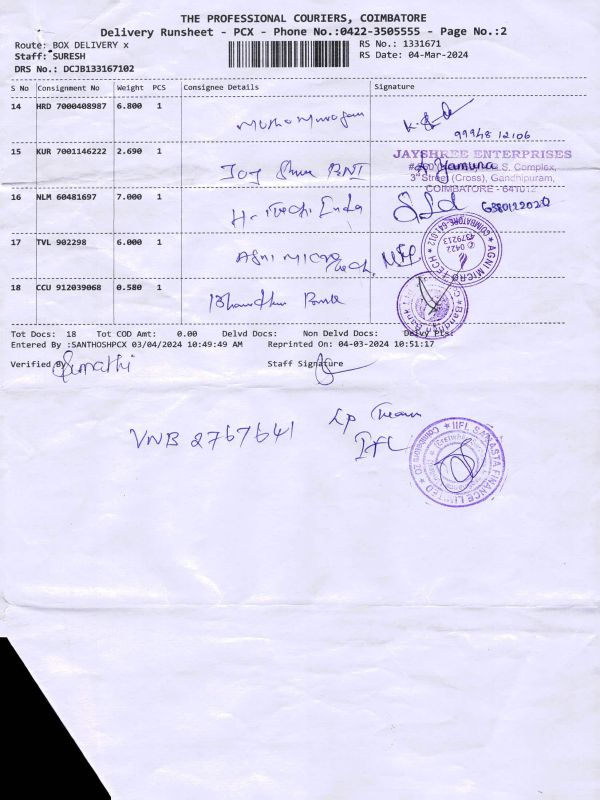 THE PROFESSIONAL COURIERS, COIMBATORE
Delivery Runsheet - PCX - Phone No.:0422-3505555 - Page No.:2
Route: BOX DELIVERY x
RS No.: 1331671
Staff: SURESH
RS Date: 04-Mar-2024
DRS No.: DCJB133167102
S No Consignment No Weight PCS Consignee Details Signature
14 HRD 7000408987 6.800 1
99948 12106
15 KUR 7001146222 2.690 1
JAYSHREE ENTERPRISES
Yamuna S. Complex,
3rd Street (Cross), Gandhipuram,
COIMBATORE - 641012
16 NLM 60481697 7.000 1
17 TVL 902298 6.000 1 Agni Micro Tech
AGNI MICRO TECH ★ COIMBATORE-641 012 ★
18 CCU 912039068 0.580 1
Tot Docs: 18 Tot COD Amt: 0.00 Delvd Docs: Non Delvd Docs: Delvy Pts:
Entered By :SANTHOSHPCX 03/04/2024 10:49:49 AM Reprinted On: 04-03-2024 10:51:17
Verified By Staff Signature
VNB 2767641
IIFL SAMASTA FINANCE LIMITED ★ Coimbatore